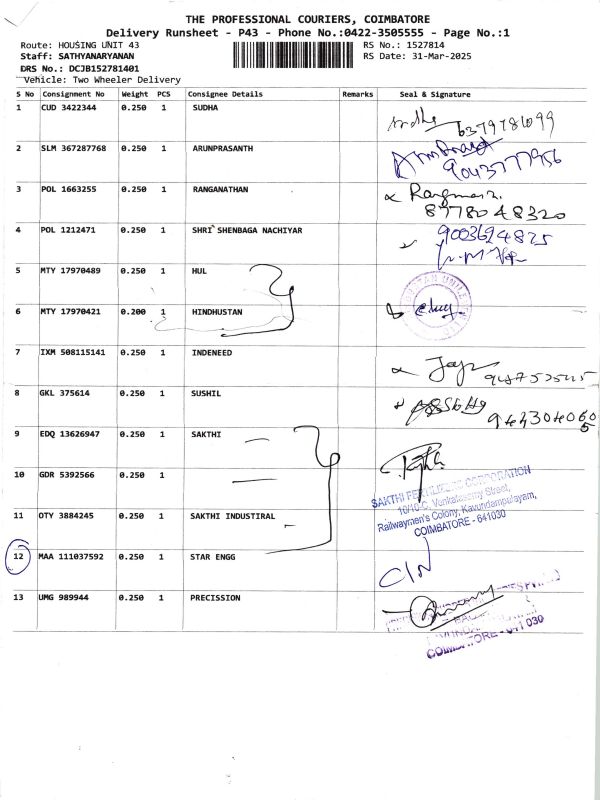 THE PROFESSIONAL COURIERS, COIMBATORE
Delivery Runsheet - P43 - Phone No.:0422-3505555 - Page No.:1
Route: HOUSING UNIT 43 RS No.: 1527814
Staff: SATHYANARYANAN RS Date: 31-Mar-2025
DRS No.: DCJB152781401
Vehicle: Two Wheeler Delivery
S No Consignment No Weight PCS Consignee Details Remarks Seal & Signature
1 CUD 3422344 0.250 1 SUDHA
6379781099
2 SLM 367287768 0.250 1 ARUNPRASANTH
9043777956
3 POL 1663255 0.250 1 RANGANATHAN
8778048320
4 POL 1212471 0.250 1 SHRI SHENBAGA NACHIYAR 9003624825
5 MTY 17970489 0.250 1 HUL
6 MTY 17970421 0.200 1 HINDHUSTAN
7 IXM 508115141 0.250 1 INDENEED
8 GKL 375614 0.250 1 SUSHIL
9 EDQ 13626947 0.250 1 SAKTHI
10 GDR 5392566 0.250 1
SAKTHI FERTILIZERS CORPORATION
10/10-C, Venkatasamy Street,
Railwaymen's Colony, Kavundampalayam,
COIMBATORE - 641030
11 OTY 3884245 0.250 1 SAKTHI INDUSTIRAL
12 MAA 111037592 0.250 1 STAR ENGG
C/N
13 UMG 989944 0.250 1 PRECISSION
COIMBATORE - 641 030